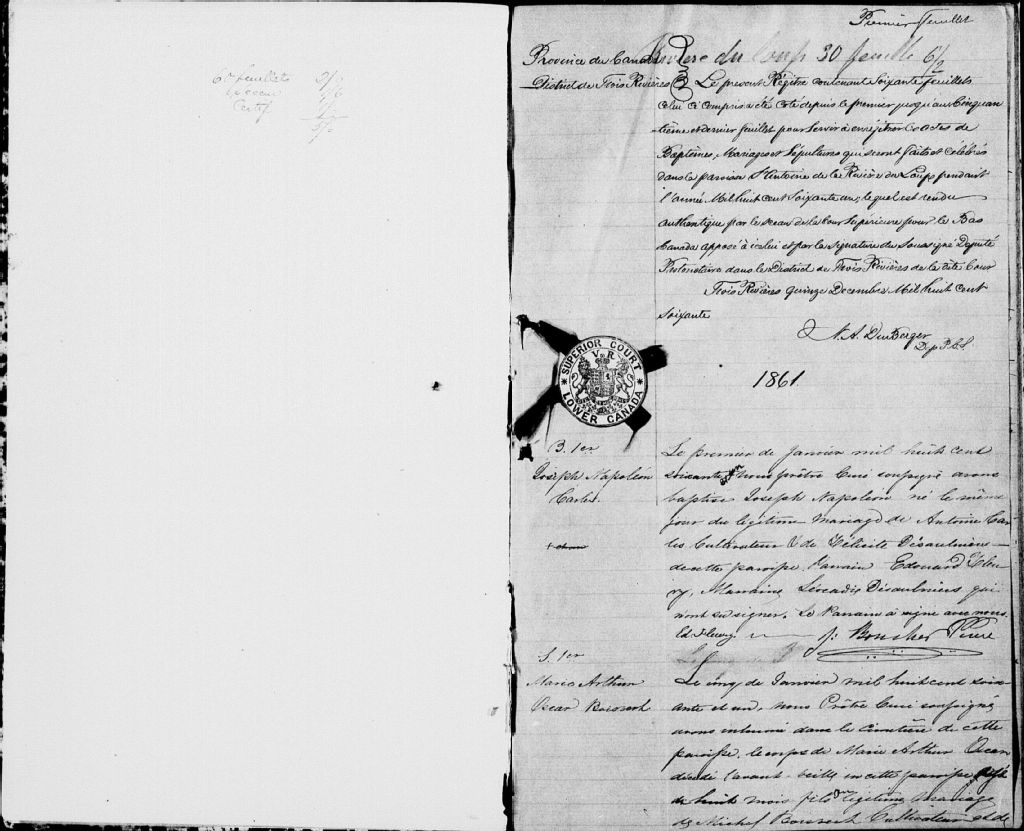 60 feuillets
Sceau
Certif
Premier feuillet
Rivière du Loup 30 feuille 6/2
Province du Canada
District de Trois Rivières
Le present Régitre contenant Soixante feuillets
celui ci compris a été coté depuis le premier jusqu'au Cinquan
tième et dernier feuillet pour servir à enrégitrer les actes de
Baptêmes, Mariages et Sépultures qui seront faits et célébrés
dans la paroisse St Antoine de la Rivière du Loup pendant
l'année Mil huit cent Soixante un; lequel est rendu
authentique par le sceau de la Cour Supérieure pour le Bas
Canada apposé à icelui et par la signature du Soussigné Deputé
Protonotaire dans le District de Trois Rivières de la dite Cour
Trois Rivières quinze Decembre Mil huit cent
Soixante
N. A. DenBerger
Dep P.C.S.
SUPERIOR COURT
V R
LOWER CANADA
1861
B. 1er
Joseph Napoléon
Carle.
Le premier de Janvier mil huit cent
soixante un nous prêtre Curé soussigné avons
baptisé Joseph Napoleon né le même
jour du légitime mariage de Antoine Car
les Cultivateur & de Félicité Désaulniers
de cette paroisse. Parrain Edouard Fleu
ry, Marraine Léocadie Désaulniers qui
n'ont su signer. Le Parrain a signé avec nous.
Ed. Fleury J. Boucher Ptre
S. 1er
Marie Arthur
Oscar Boissert
Le cinq de Janvier mil huit cent soix
ante et un, nous Prêtre Curé soussigné
avons inhumé dans le cimetière de cette
paroisse, le corps de Marie Arthur Oscar
décédé l'avant-veille en cette paroisse âgé
de huit mois fils du légitime mariage
de Michel Boissert Cultivateur et de